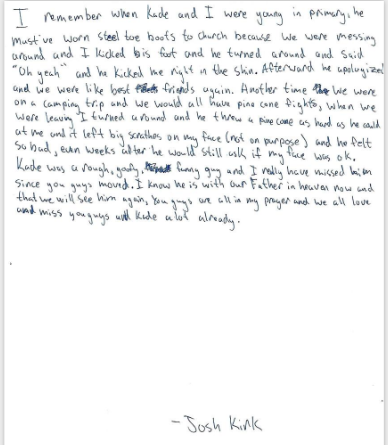 I remember when Kade and I were young in primary, he
must've worn steel toe boots to church because we were messing
around and I kicked his foot and he turned around and said
"Oh yeah" and he kicked me right in the shin. Afterward he apologized
and we were like best friends again. Another time we were
on a camping trip and we would all have pine cone fights, when we
were leaving I turned around and he threw a pine cone as hard as he could
at me and it left big scrathes on my face (not on purpose) and he felt
so bad, even weeks after he would still ask if my face was ok.
Kade was a rough, goofy, funny guy and I really have missed him
since you guys moved. I know he is with our Father in heaven now and
that we will see him again, you guys are all in my prayer and we all love
and miss you guys and Kade a lot already.
- Josh Kirk